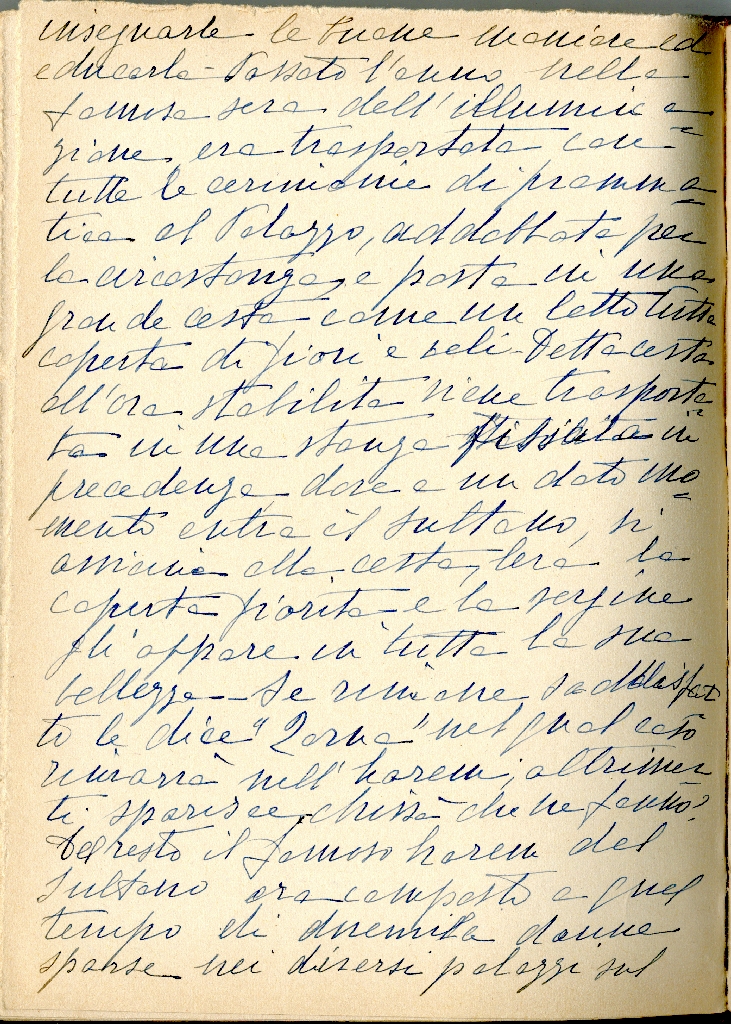 insegnarle le buone maniere ed
educarla - Passato l'anno nella
famosa sera dell'illumina
zione, era trasportata con
tutte le cerimonie di pramma
tica al Palazzo, addobbata per
la circostanza, e posta in una
grande cesta come un letto tutta
coperta di fiori e veli - Detta cesta
all'ora stabilita viene trasporta
ta in una stanza stabilita in
precedenza dove a un dato mo=
mento entra il sultano, si
avvicina alla cesta, leva la
coperta fiorita e la vergine
gli appare in tutta la sua
bellezza - Se rimane saddisfat
to le dice " " nel qual caso
rimarrà nell'harem, altrimen
ti sparisce, chissà che ne fanno?
Del resto il famoso harem del
Sultano era composto a quel
tempo di duemila donne
sparse nei diversi palazzi sul